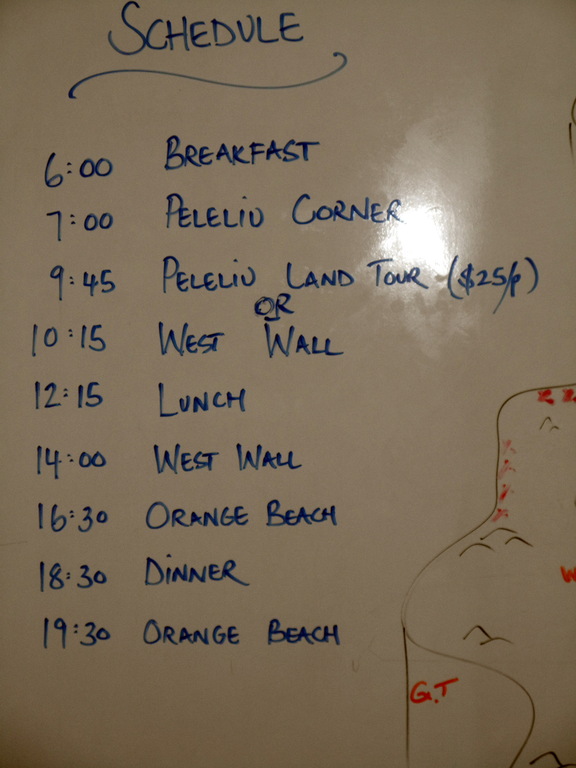 SCHEDULE
6:00 BREAKFAST
7:00 PELELIU CORNER
9:45 PELELIU LAND TOUR ($25/p)
OR
10:15 WEST WALL
12:15 LUNCH
14:00 WEST WALL
16:30 ORANGE BEACH
18:30 DINNER
19:30 ORANGE BEACH
G.T